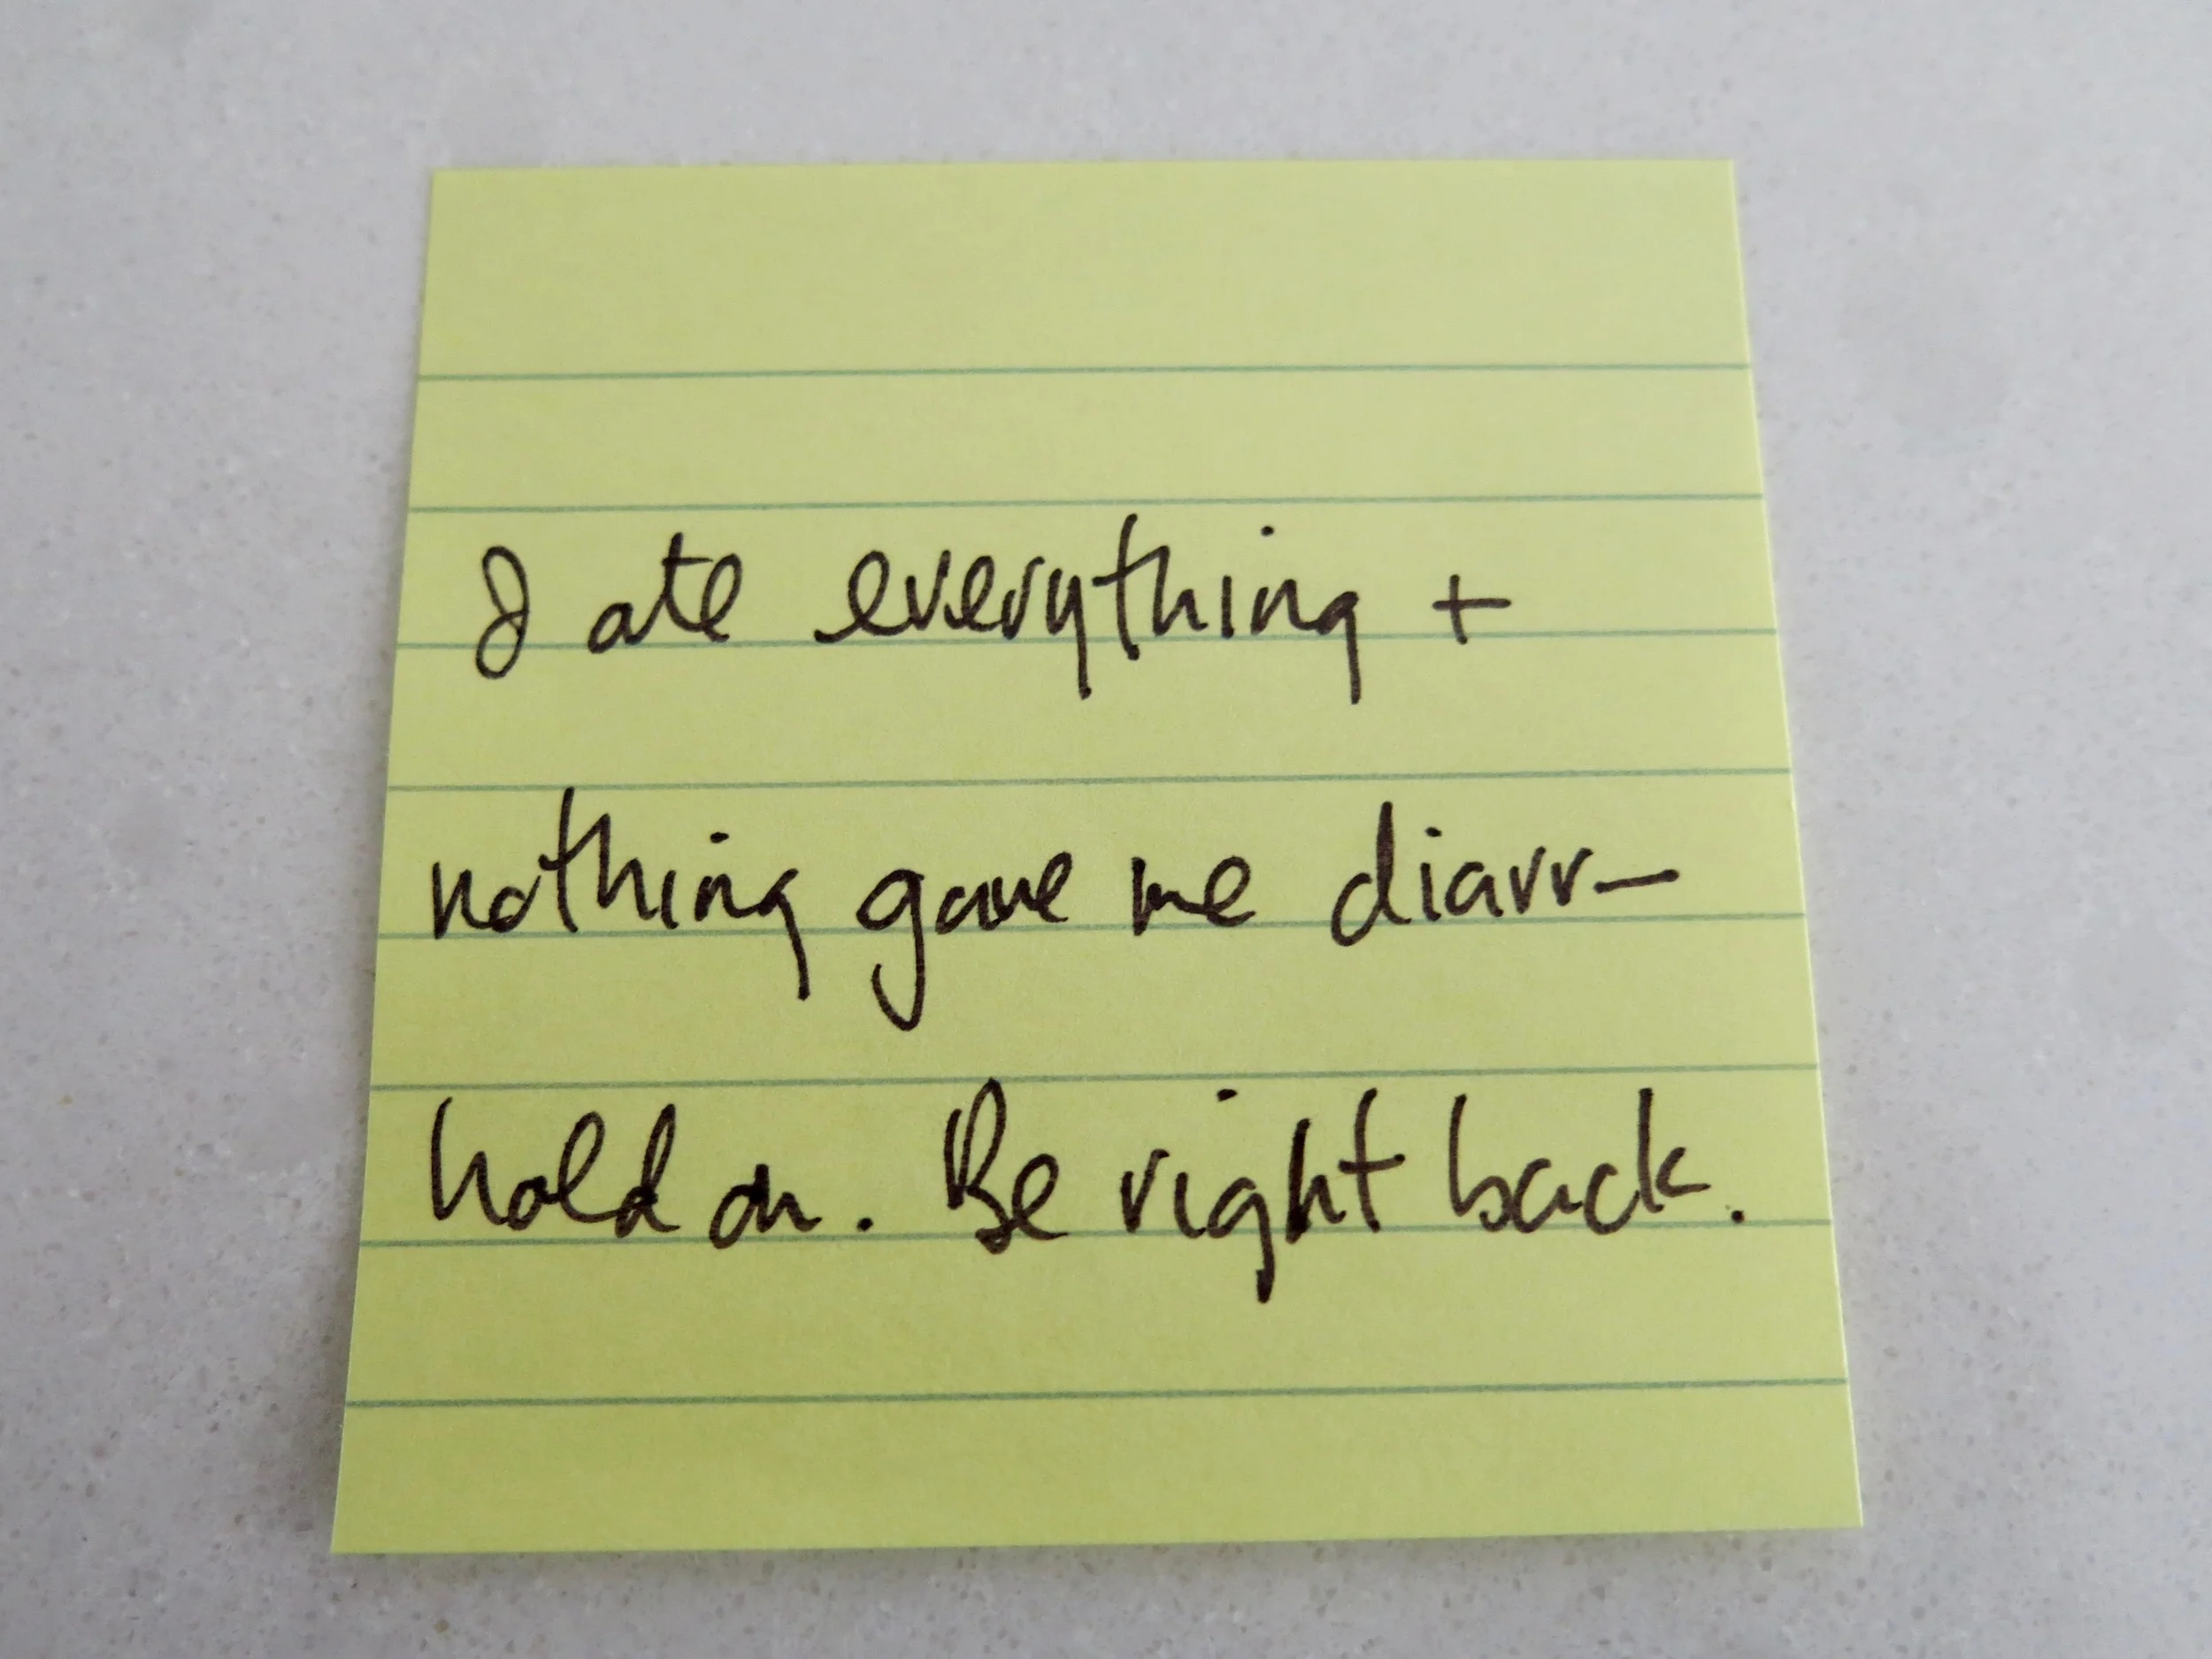 I ate everything +
nothing gave me diarr—
hold on. Be right back.